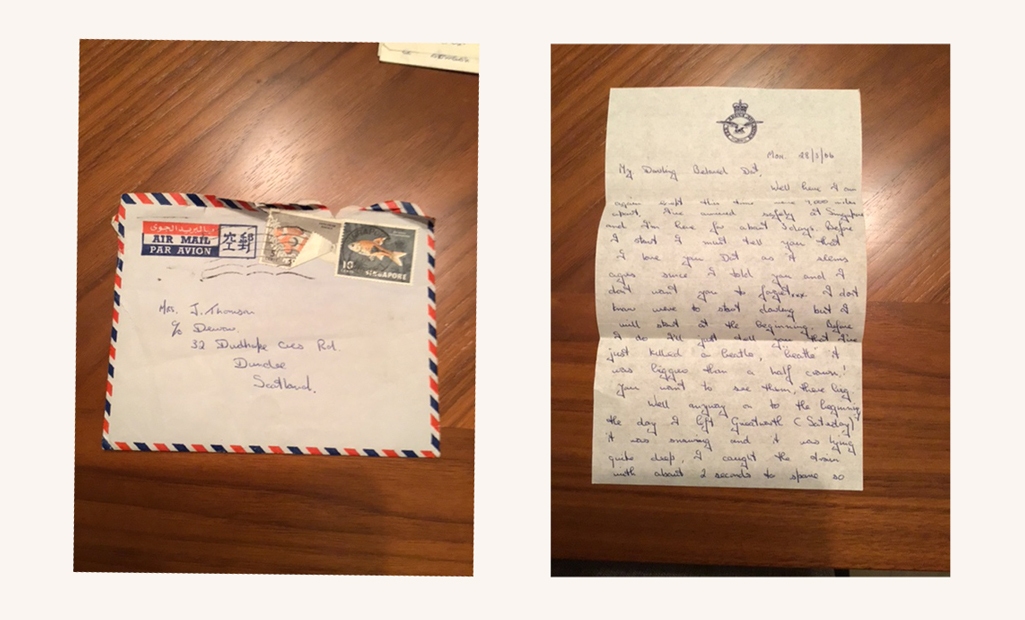 AIR MAIL
PAR AVION
空郵
10
CENTS
SINGAPORE
Mrs. J. Thomson
c/o Dewar
32 Dudhope Cres Rd.
Dundee
Scotland.
Mon 28/3/66
My Darling Beloved Dot,
Well here I am
again except this time more 7,000 miles
apart. I've arrived safely at Singapore
and I'm here for about 3 days. Before
I start I must tell you that
I love you Dot as it seems
ages since I told you and I
don't want you to forget xxx I don't
know where to start darling but I
will start at the beginning. Before
I do I'll just tell you that I've
just killed a beatle, beatle it
was bigger than a half crown!
You want to see them, there big.
Well anyway on to the beginning
the day I left Greatworth (Saturday)
it was snowing and it was lying
quite deep, I caught the train
with about 2 seconds to spare so